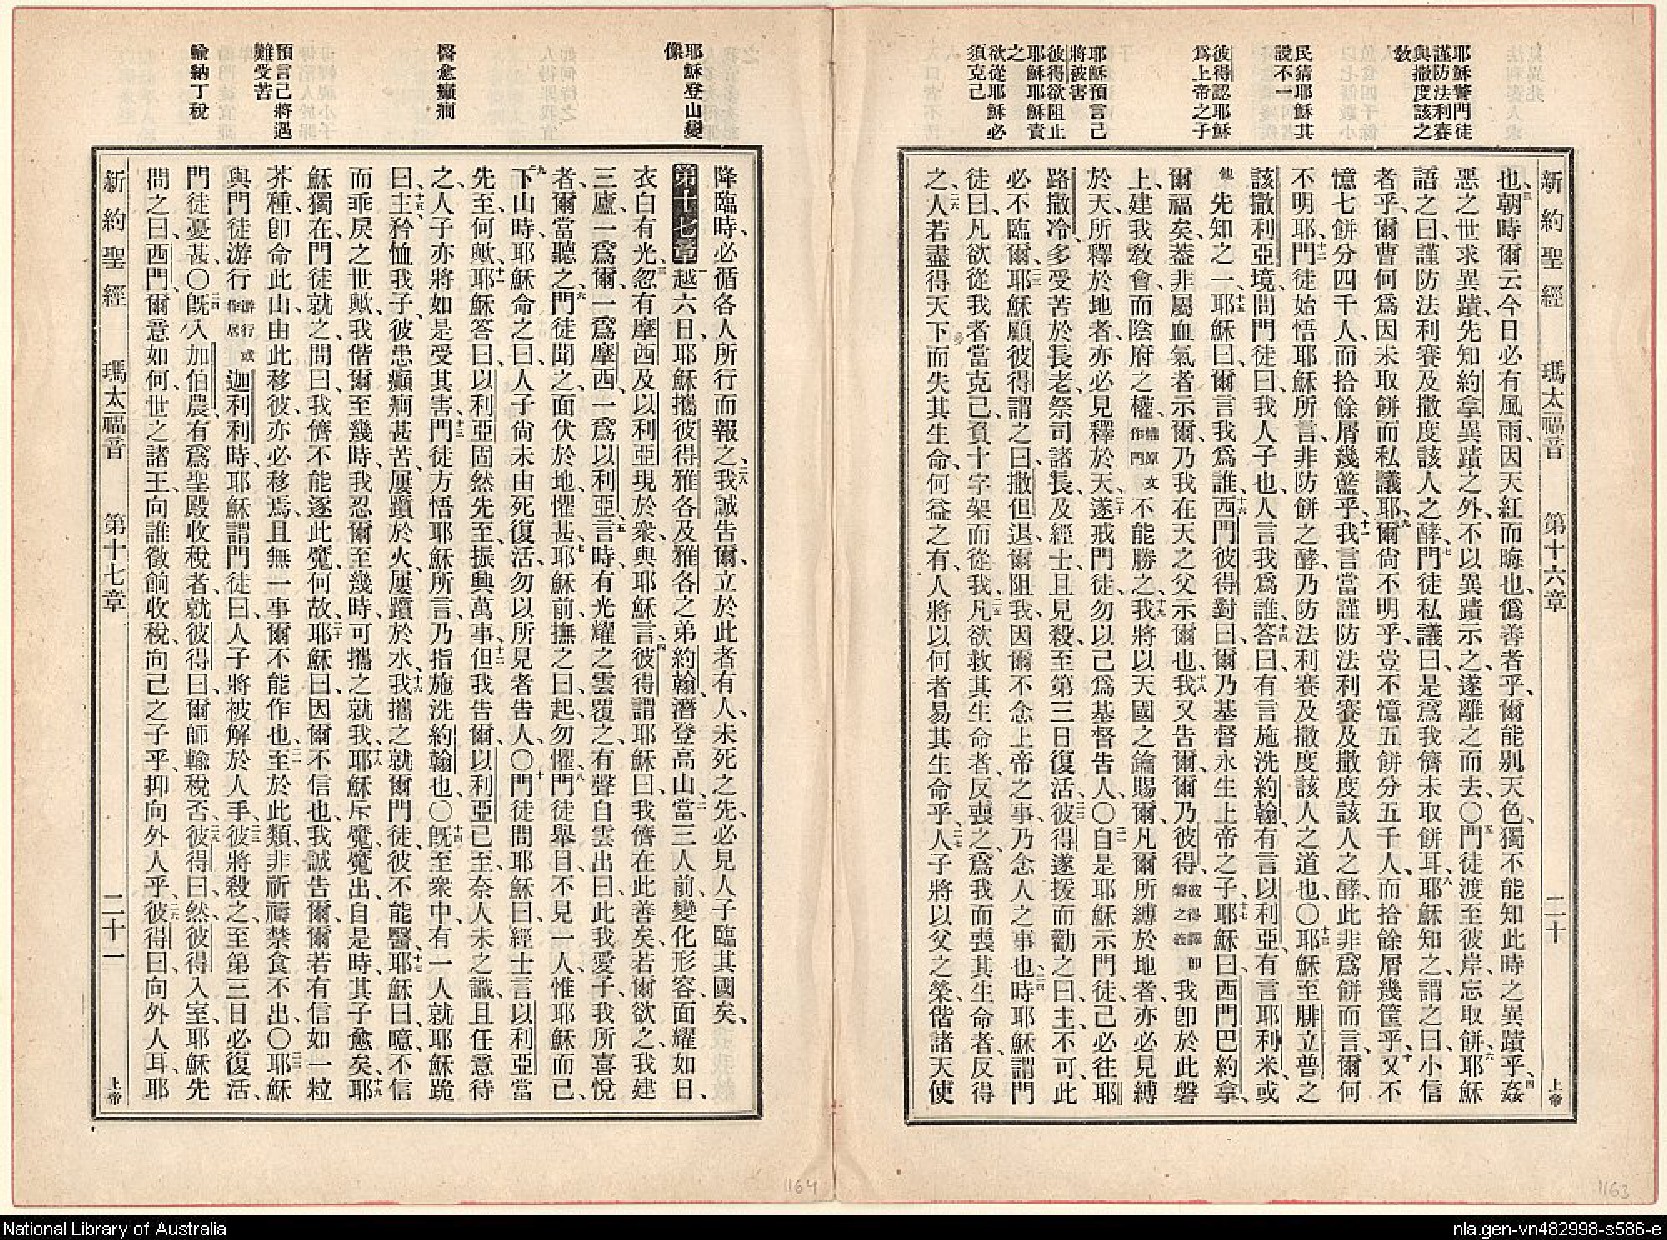 耶穌警門徒
謹防法利賽
與撒度該之
敎
民猜耶穌其
說不一
彼得認耶穌
爲上帝之子
耶穌預言己
將被害
彼得欲阻止
耶穌耶穌責
之
欲從耶穌必
須克己
新約聖經 瑪太福音 第十六章 二十 上帝
也朝時爾云今日必有風雨因天紅而晦也僞善者乎爾能別天色獨不能知此時之異蹟乎姦
惡之世求異蹟先知約拿異蹟之外不以異蹟示之遂離之而去〇門徒渡至彼岸忘取餅耶穌
語之曰謹防法利賽及撒度該人之酵門徒私議曰是爲我儕未取餅耳耶穌知之謂之曰小信
者乎爾曹何爲因未取餅而私議耶爾尙不明乎豈不憶五餅分五千人而拾餘屑幾筐乎又不
憶七餅分四千人而拾餘屑幾籃乎我言當謹防法利賽及撒度該人之酵此非爲餅而言爾何
不明耶門徒始悟耶穌所言非防餅之酵乃防法利賽及撒度該人之道也〇耶穌至腓立普之
該撒利亞境問門徒曰我人子也人言我爲誰答曰有言施洗約翰有言以利亞有言耶利米或
他先知之一耶穌曰爾言我爲誰西門彼得對曰爾乃基督永生上帝之子耶穌曰西門巴約拿
爾福矣蓋非屬血氣者示爾乃我在天之父示爾也我又告爾爾乃彼得彼得譯卽磐之義我卽於此磐
上建我敎會而陰府之權權原文作門不能勝之我將以天國之鑰賜爾凡爾所縛於地者亦必見縛
於天所釋於地者亦必見釋於天遂戒門徒勿以己爲基督告人〇自是耶穌示門徒己必往耶
路撒冷多受苦於長老祭司諸長及經士且見殺至第三日復活彼得遂援而勸之曰主不可此
必不臨爾耶穌顧彼得謂之曰撒但退爾阻我因爾不念上帝之事乃念人之事也時耶穌謂門
徒曰凡欲從我者當克己負十字架而從我凡欲救其生命者反喪之爲我而喪其生命者反得
之人若盡得天下而失其生命何益之有人將以何者易其生命乎人子將以父之榮偕諸天使
1163
耶穌登山變
像
醫愈癲癇
預言己將遇
難受苦
輸納丁稅
降臨時必循各人所行而報之我誠告爾立於此者有人未死之先必見人子臨其國矣
第十七章越六日耶穌攜彼得雅各及雅各之弟約翰潛登高山當三人前變化形容面耀如日
衣白有光忽有摩西及以利亞現於衆與耶穌言彼得謂耶穌曰我儕在此善矣若爾欲之我建
三廬一爲爾一爲摩西一爲以利亞言時有光耀之雲覆之有聲自雲出曰此我愛子我所喜悅
者爾當聽之門徒聞之面伏於地懼甚耶穌前撫之曰起勿懼門徒舉目不見一人惟耶穌而已
下山時耶穌命之曰人子尙未由死復活勿以所見者告人〇門徒問耶穌曰經士言以利亞當
先至何歟耶穌答曰以利亞固然先至振興萬事但我告爾以利亞已至奈人未之識且任意待
之人子亦將如是受其害門徒方悟耶穌所言乃指施洗約翰也〇旣至衆中有一人就耶穌跪
曰主矜恤我子彼患癲癇甚苦屢躓於火屢躓於水我攜之就爾門徒彼不能醫耶穌曰噫不信
而乖戾之世歟我偕爾至幾時我忍爾至幾時可攜之就我耶穌斥魔魔出自是時其子愈矣耶
穌獨在門徒就之問曰我儕不能逐此魔何故耶穌曰因爾不信也我誠告爾爾若有信如一粒
芥種卽命此山由此移彼亦必移焉且無一事爾不能作也至於此類非祈禱禁食不出〇耶穌
與門徒遊行遊行或作居迦利利時耶穌謂門徒曰人子將被解於人手彼將殺之至第三日必復活
門徒憂甚〇旣入加伯農有爲聖殿收稅者就彼得曰爾師輸稅否彼得曰然彼得入室耶穌先
問之曰西門爾意如何世之諸王向誰徵餉收稅向己之子乎抑向外人乎彼得曰向外人耳耶
新約聖經 瑪太福音 第十七章 二十一 上帝
1164
National Library of Australia
nla.gen-vn482998-s586-e